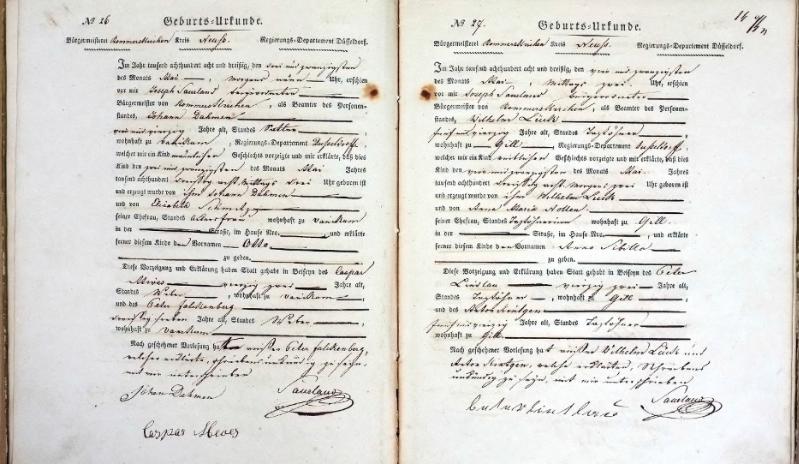 No 26 Geburts-Urkunde.
Bürgermeisterei Rommerskirchen Kreis Neuss. Regierungs-Departement Düsseldorf.
Im Jahr tausend achthundert acht und dreißig, den
des Monats Mai, Morgens neun Uhr, erschien
vor mir Joseph Sauland Beigeordneter
Bürgermeister von Rommerskirchen, als Beamter des Personen-
standes, Johann Dahmen
vier und vierzig Jahre alt, Standes
wohnhaft zu, Regierungs-Departement Düsseldorf,
welcher mir ein Kind männlichen Geschlechts vorzeigte und mir erklärte, daß dies
Kind den zwei und zwanzigsten des Monats Mai Jahres
tausend achthundert dreißig acht Mittags drei Uhr geboren ist
und erzeugt wurde von ihm Johann Dahmen
und von Elisabeth Schmitz
seiner Ehefrau, Standes Ackersfrau wohnhaft zu
in der Straße, im Hause Nro. und erklärte
ferner diesem Kinde den Vornamen Otto
zu geben.
Diese Vorzeigung und Erklärung haben Statt gehabt in Beiseyn des Caspar
Meves vierzig zwei Jahre alt,
Standes Weber, wohnhaft zu
und des Peter Falkenburg
dreißig sieben Jahre alt, Standes Weber
wohnhaft zu
Nach geschehener Vorlesung hat Peter Falkenburg,
welcher erklärte, schreibens unkundig zu seyn,
mit mir unterschrieben
Johan Dahmen Sauland
Caspar Meves
No 27. Geburts-Urkunde.
Bürgermeisterei Rommerskirchen Kreis Neuss. Regierungs-Departement Düsseldorf.
Im Jahr tausend achthundert acht und dreißig, den vier und zwanzigsten
des Monats Mai, Mittags zwei Uhr, erschien
vor mir Joseph Sauland Beigeordneter
Bürgermeister von Rommerskirchen, als Beamter des Personen-
standes, Wilhelm Lück
fünf und vierzig Jahre alt, Standes Taglöhner
wohnhaft zu Gill, Regierungs-Departement Düsseldorf,
welcher mir ein Kind weiblichen Geschlechts vorzeigte und mir erklärte, daß dies
Kind den vier und zwanzigsten des Monats Mai Jahres
tausend achthundert dreißig acht Morgens zwei Uhr geboren ist
und erzeugt wurde von ihm Wilhelm Lück
und von Anna Maria Nolten
seiner Ehefrau, Standes Taglöhnerin wohnhaft zu Gill
in der Straße, im Hause Nro. und erklärte
ferner diesem Kinde den Vornamen Anna Sibilla
zu geben.
Diese Vorzeigung und Erklärung haben Statt gehabt in Beiseyn des Peter
Lindlau vierzig zwei Jahre alt,
Standes Taglöhner, wohnhaft zu Gill
und des
fünf und vierzig Jahre alt, Standes Taglöhner
wohnhaft zu Gill
Nach geschehener Vorlesung hat Wilhelm Lück und
welche erklärten, Schreibens
unkundig zu seyn, mit mir unterschrieben
Sauland